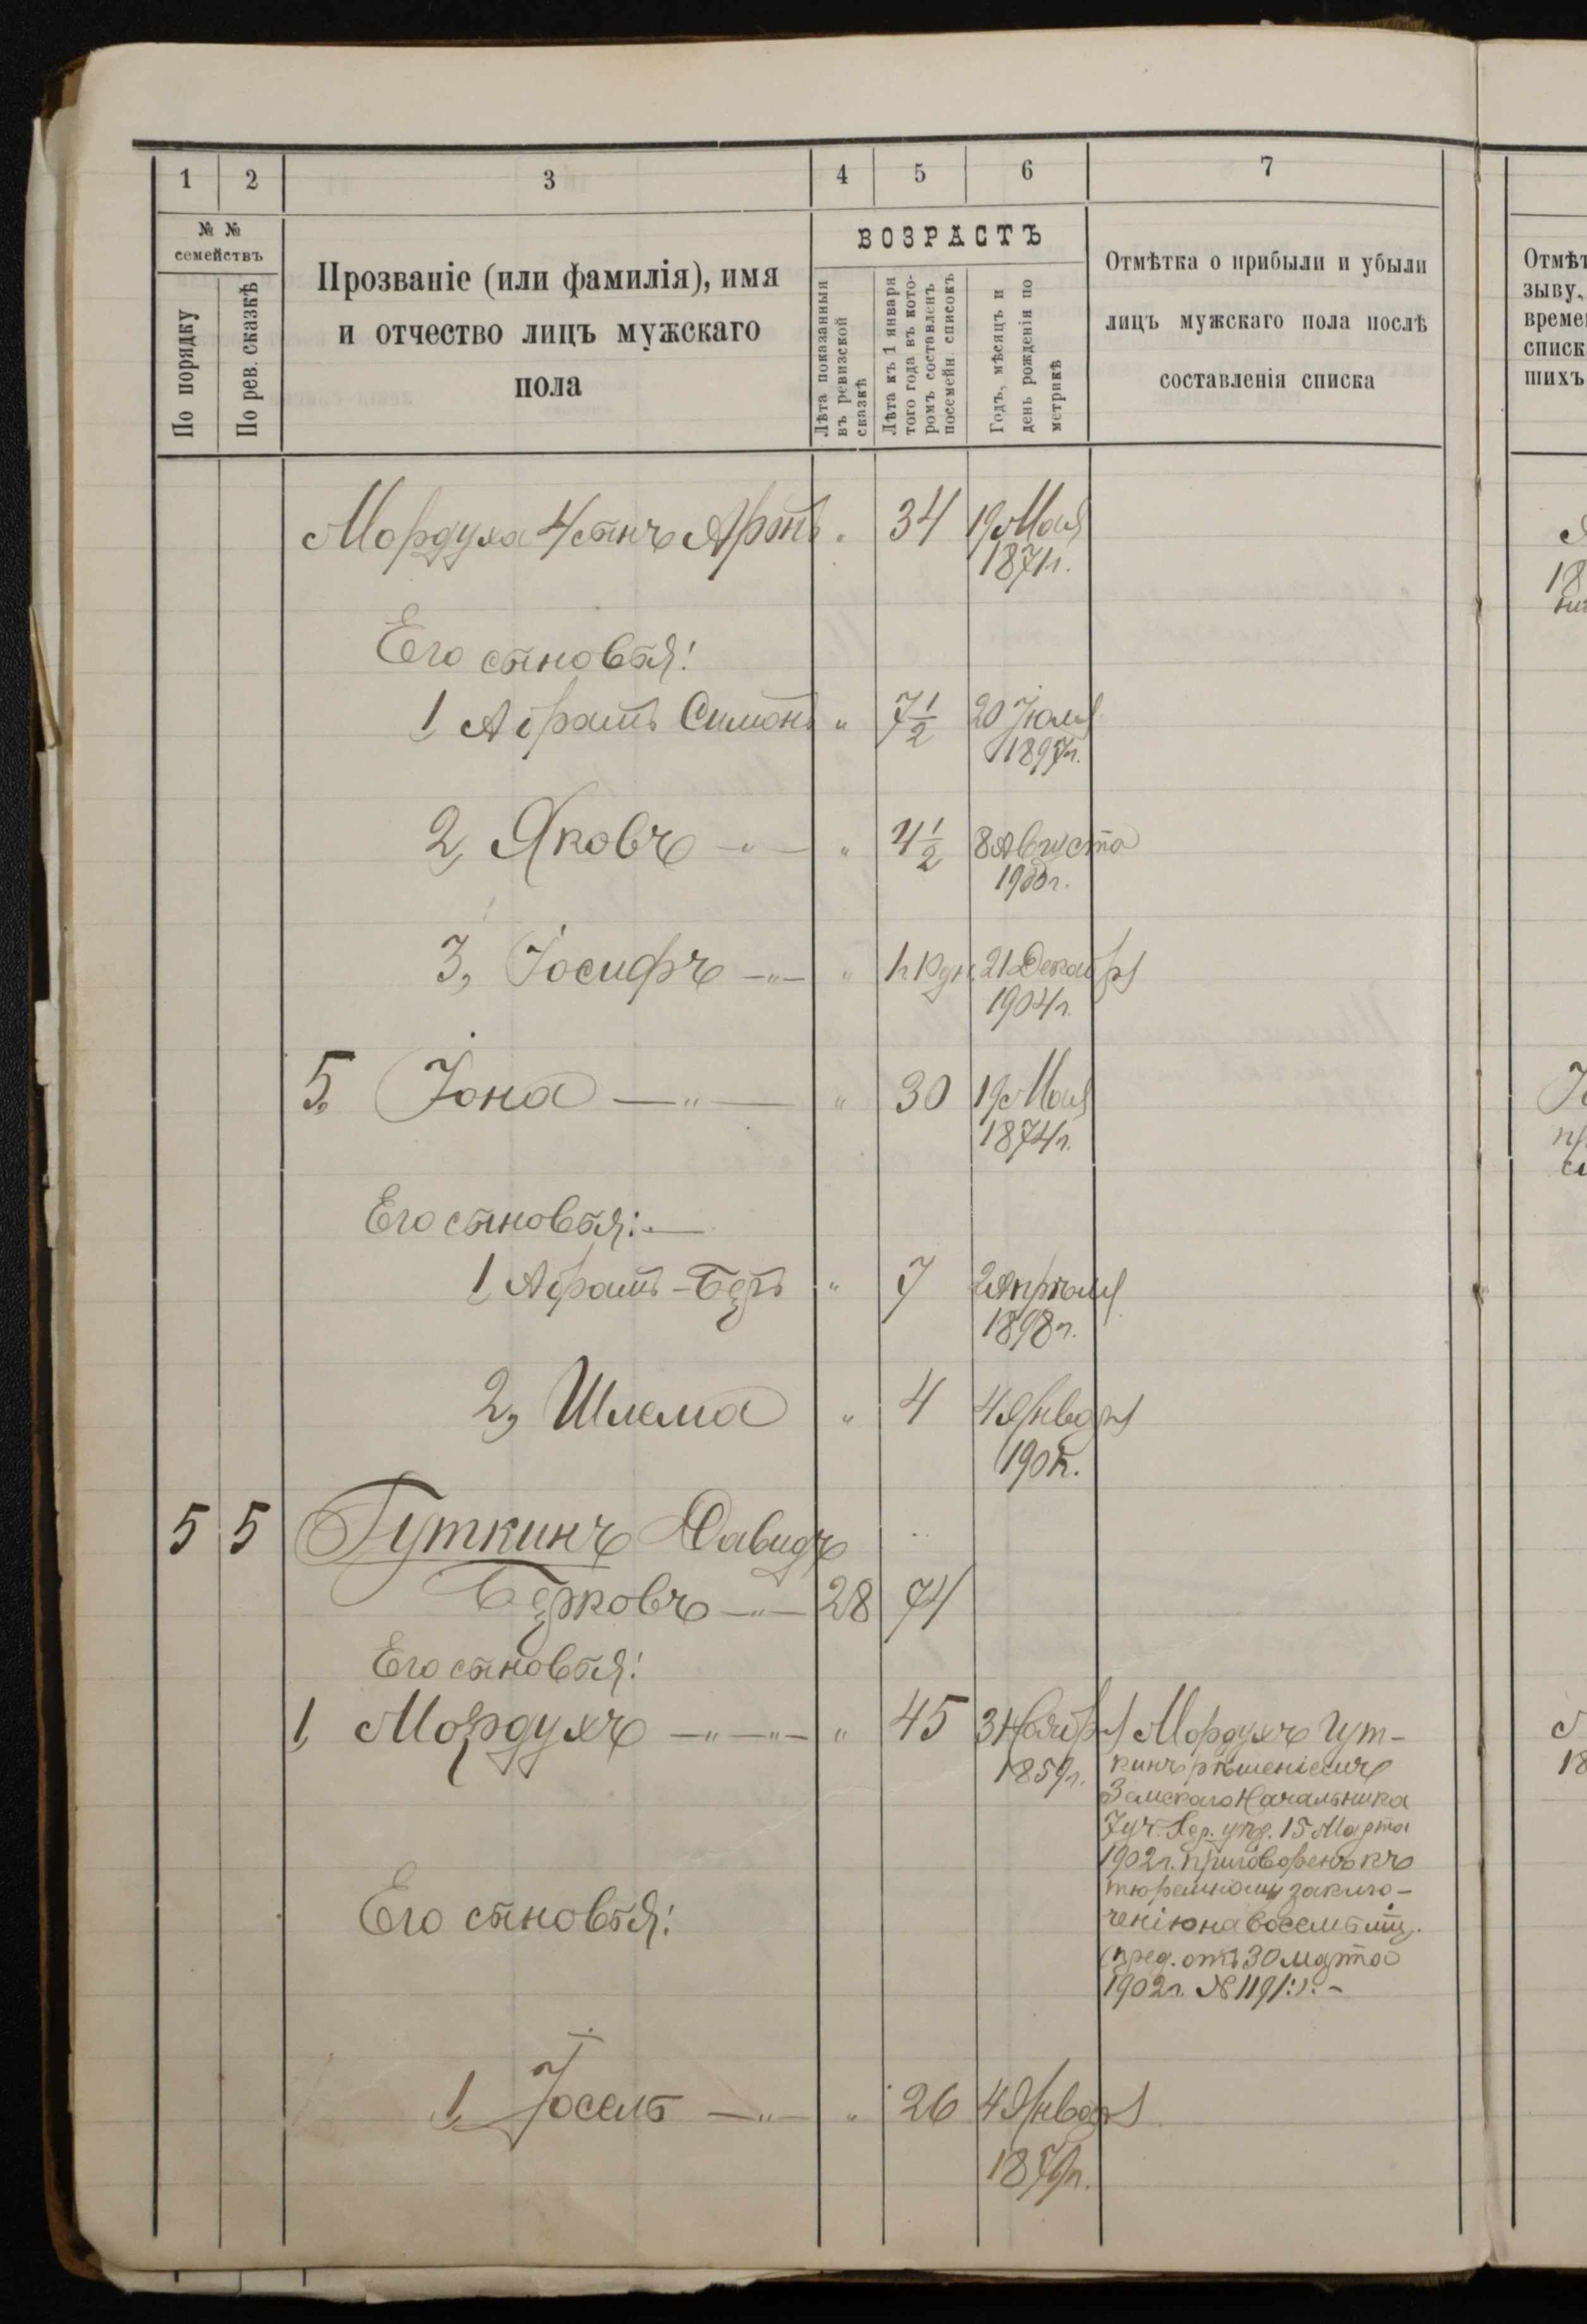 1 2 3 4 5 6 7
№ №
семействъ
По порядку
По рев. сказкѣ
Прозваніе (или фамилія), имя
и отчество лицъ мужскаго
пола
ВОЗРАСТЪ
Лѣта показанныя
въ ревизской
сказкѣ
Лѣта къ 1 января
того года въ кото-
ромъ составленъ
посемейн. списокъ
Годъ, мѣсяцъ и
день рожденія по
метрикѣ
Отмѣтка о прибыли и убыли
лицъ мужскаго пола послѣ
составленія списка
Мордуха 4 сынъ 34 19 Мая
1871 г.
Его сыновья:
1, Абрамъ Симонъ " 7 1/2 20 Іюля
1897 г.
2, Яковъ —"— " 4 1/2 8 Августа
1900 г.
3, Іосифъ —"— " 21 Декабря
1904 г.
5, Іона —"— " 30 19 Мая
1874 г.
Его сыновья:—
1, Абрамъ-Беръ " 7 2 Апрѣля
1898 г.
2, Шлема " 4 4 Января
1901 г.
5 5 Гуткинъ Давидъ
Берковъ —"— 28 74
Его сыновья:
1, Мордухъ —"—"— " 45 3 Ноября
1859 г.
Мордухъ Гут-
кинъ рѣшеніемъ
Земскаго Начальника
7 уч. 15 Марта
1902 г. приговоренъ къ
тюремному заклю-
ченію на восемь мѣс.
(пред. отъ 30 марта
1902 г. № 1191:).-
Его сыновья:
1, Іосель —"— " 26 4 Января
1879 г.
Отмѣт
зыву,
време
списк
шихъ